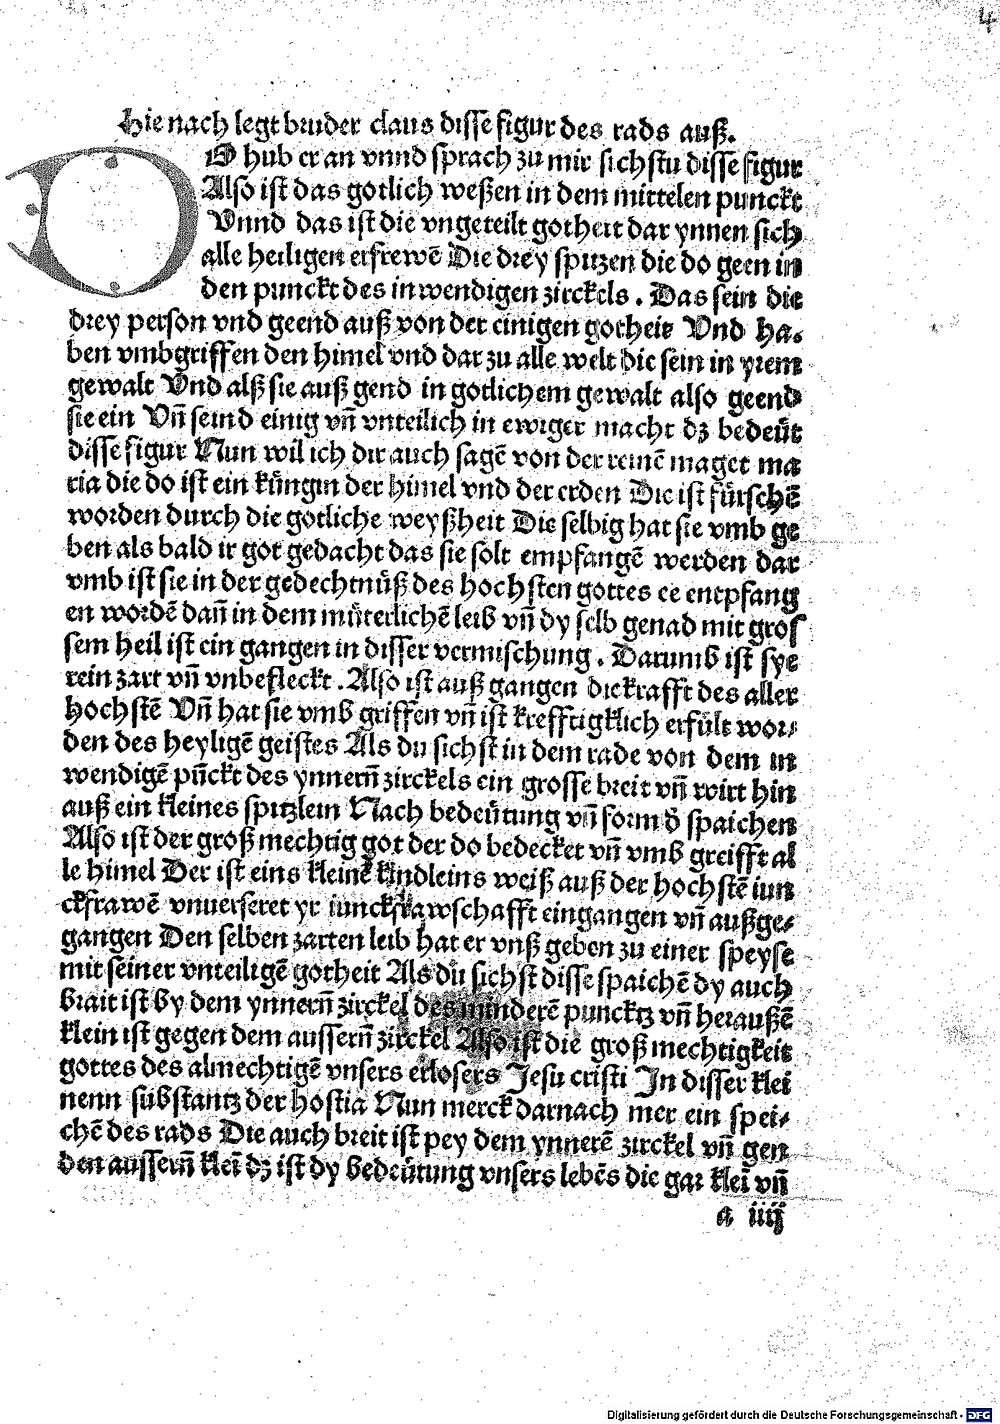 4
Hie nach legt bruder claus disse figur des rads auß.
DO hub er an vnnd sprach zu mir sichstu disse figur
Also ist das gotlich weßen in dem mittelen punckt
Vnnd das ist die vngeteilt gotheit dar ynnen sich
alle heiligen erfrewē Die drey spitzen die do geen in
den punckt des inwendigen zirckels . Das sein die
drey person vnd geend auß von der einigen gotheit Vnd ha-
ben vmbgriffen den himel vnd dar zu alle welt die sein in yrem
gewalt Vnd alß sie auß gend in gotlichem gewalt also geend
sie ein Vñ seind einig vñ vnteilich in ewiger macht dz bedeüt
disse figur Nun wil ich dir auch sagē von der reinē maget ma
ria die do ist ein küngin der himel vnd der erden Die ist fürschē
worden durch die gotliche weyßheit Die selbig hat sie vmb ge
ben als bald ir got gedacht das sie solt empfangē werden dar
vmb ist sie in der gedechtnüß des hochsten gottes ee entpfang
en wordē dañ in dem müterlichē leib vñ dy selb genad mit gros
sem heil ist ein gangen in disser vermischung . Darumb ist sye
rein zart vñ vnbefleckt . Also ist auß gangen die krafft des aller
hochstē Vñ hat sie vmb griffen vñ ist krefftigklich erfült wor-
den des heyligē geistes Als du sichst in dem rade von dem in
wendigē pückt des ynnerñ zirckels ein grosse breit vñ wirt hin
auß ein kleines spitzlein Nach bedeütung vñ form d̄ spaichen
Also ist der groß mechtig got der do bedecket vñ vmb greifft al
le himel Der ist eins kleinē kindleins weiß auß der hochstē iun
ckfrawē vnuerseret yr iunckfrawschafft eingangen vñ außge-
gangen Den selben zarten leib hat er vnß geben zu einer speyse
mit seiner vnteiligē gotheit Als du sichst disse spaichē dy auch
brait ist by dem ynnerñ zirckel des minderē puncktz vñ heraußē
klein ist gegen dem ausserñ zirckel Also ist die groß mechtigkeit
gottes des almechtigē vnsers erlosers Jesu cristi In disser klei
nenn substantz der hostia Nun merck darnach mer ein spei-
chē des rads Die auch breit ist pey dem ynnerē zirckel vñ gen
den ausserñ kleī dz ist dy bedeütung vnsers lebēs die gar kleī vñ
a iiij
Digitalisierung gefördert durch die Deutsche Forschungsgemeinschaft - DFG